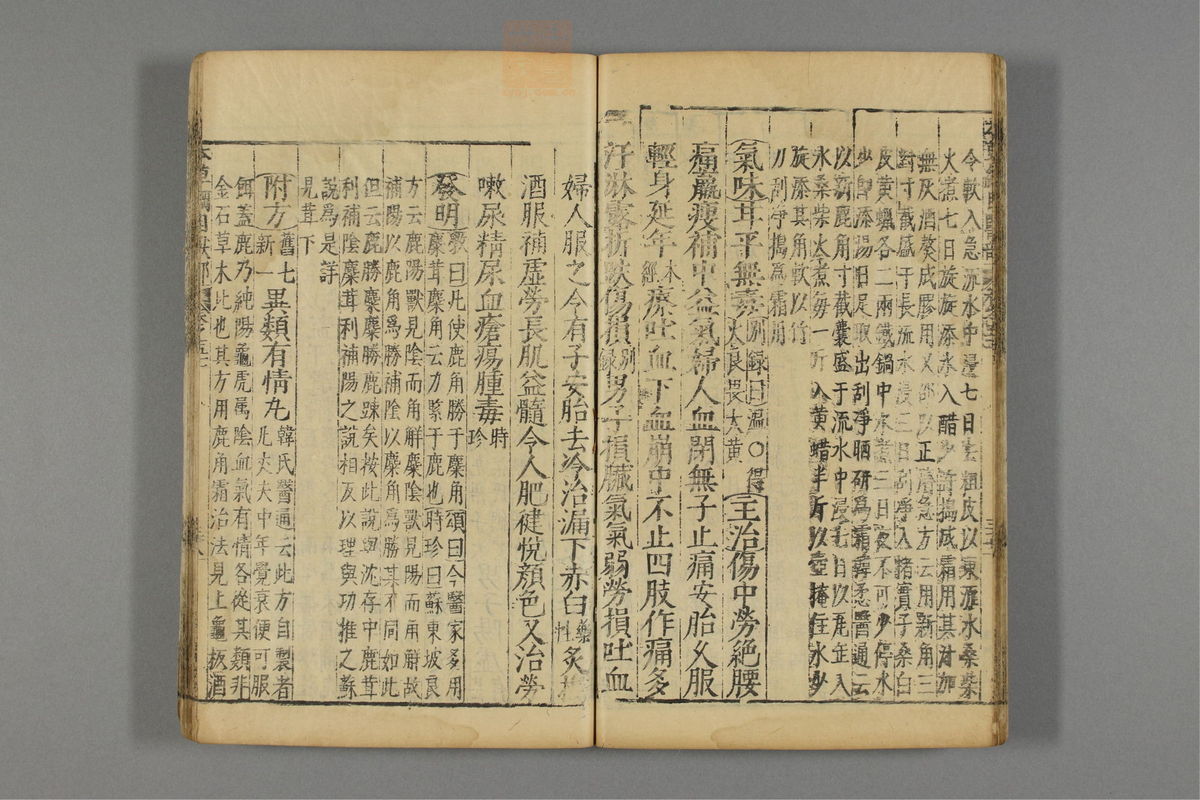 今軟入急流水中浸七日去粗皮以東流水桑柴
火煮七日旋旋添水入醋少許搗成霜用其汁加
無灰酒熬成膠用又邵以正濟急方云用新角三
對寸截盛于長流水浸三日刮淨入楮實子桑白
皮黃蠟各二兩鐵鍋中水煮三日夜不可少停水
少即添湯日足取出刮淨晒研為霜韓悉醫通云
以新鹿角寸截囊盛于流水中浸七日以瓦缶入
水桑柴火煮每一斤入黃蜡半斤以壺掩住水少
旋添其角軟以竹
刀刮淨搗爲霜用
氣味甘平無毒別錄曰溫○得
火良畏大黃
主治傷中勞絕腰
痛羸瘦補中益氣婦人血閉無子止痛安胎久服
輕身延年本
經療吐血下血崩中不止四肢作痛多
汗淋露折跌傷損別
錄男子損臟氣氣弱勞損吐血
婦人服之令有子安胎去冷治漏下赤白藥
性炙
酒服補虛勞長肌益髓令人肥健悅顏色又治勞
嗽尿精尿血瘡瘍腫毒時
珍
發明斅曰凡使鹿角勝于麋角頌曰今醫家多用
麋茸麋角云力緊于鹿也時珍曰蘇東坡良
方云鹿陽獸見陰而角解麋陰獸見陽而角解故
補陽以鹿角爲勝補陰以麋角爲勝其不同如此
但云鹿勝麋麋勝鹿踈矣按此說與沈存中鹿茸
利補陰麋茸利補陽之說相反以理與功推之蘇
說爲是詳
見茸下
附方舊七
新一
異類有情丸韓氏醫通云此方自製者
凡丈夫中年覺衰便可服
餌蓋鹿乃純陽龜虎属陰血氣有情各從其類非
金石草木比也其方用鹿角霜治法見上龜板酒